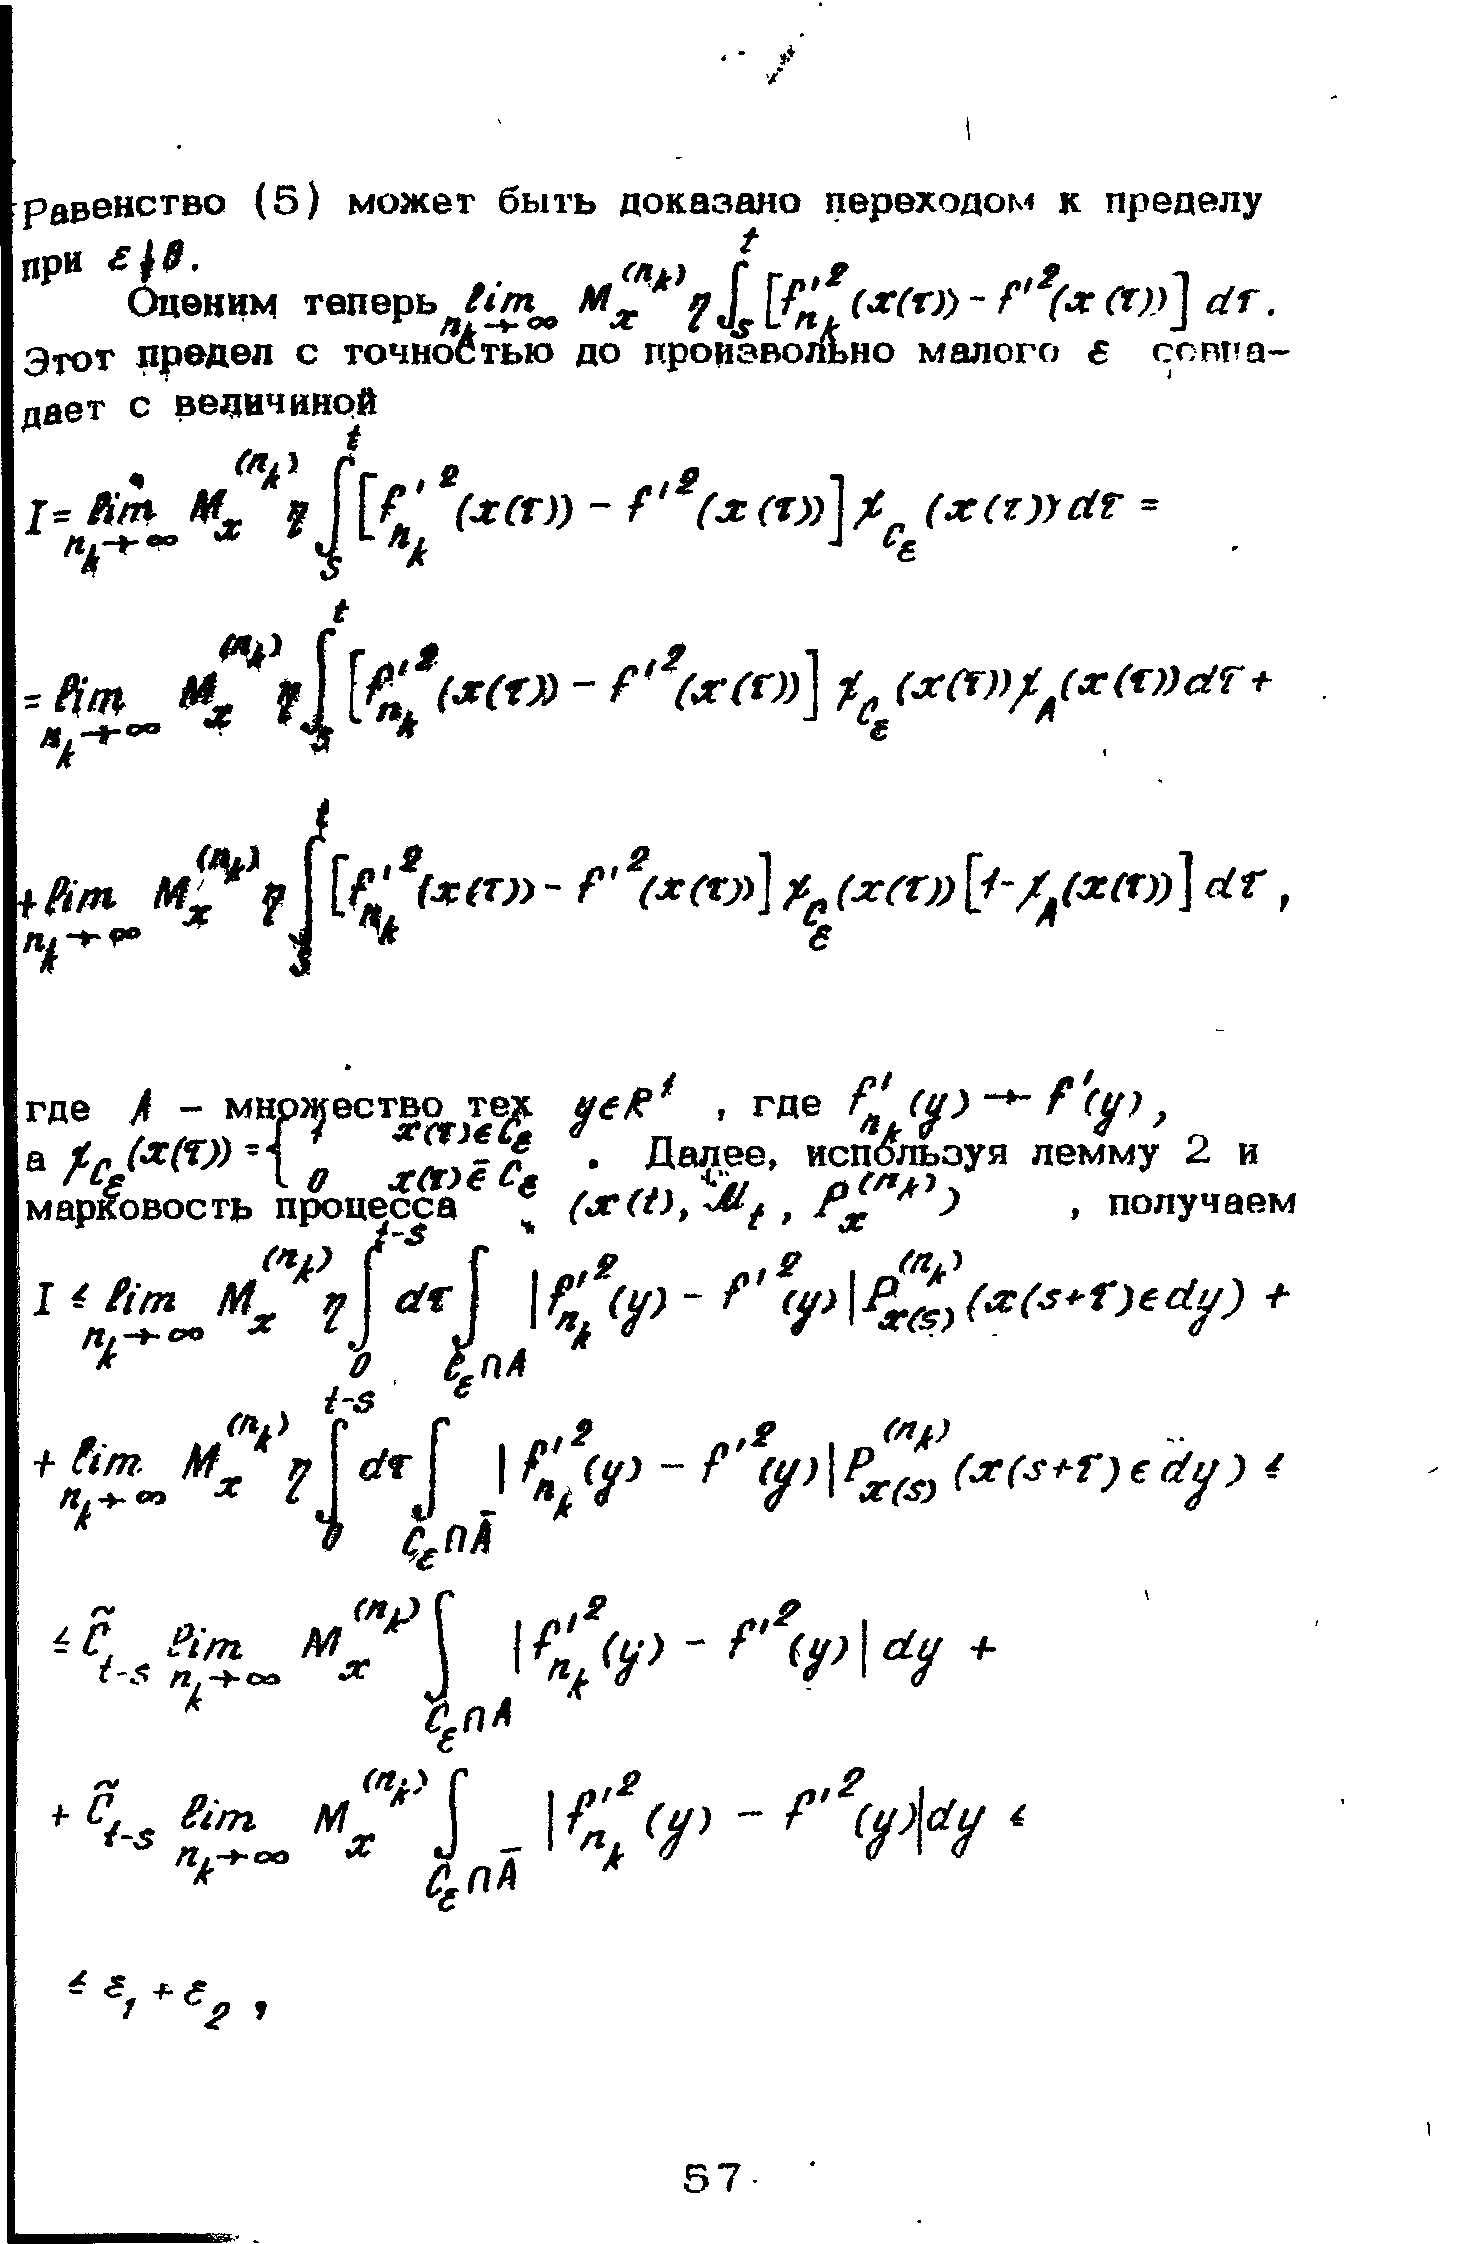 Равенство (5) может быть доказано переходом к пределу
при $\varepsilon \downarrow 0$.
Оценим теперь $\lim_{n_k \to \infty} M_x^{(n_k)} \eta \int_s^t [f'^2_{n_k}(x(\tau)) - f'^2(x(\tau))] d\tau$.
Этот предел с точностью до произвольно малого $\varepsilon$ совпа-
дает с величиной
$I = \lim_{n_k \to \infty} M_x^{(n_k)} \eta \int_s^t [f'^2_{n_k}(x(\tau)) - f'^2(x(\tau))] \chi_{C_\varepsilon}(x(\tau)) d\tau =$
$= \lim_{n_k \to \infty} M_x^{(n_k)} \eta \int_s^t [f'^2_{n_k}(x(\tau)) - f'^2(x(\tau))] \chi_{C_\varepsilon}(x(\tau)) \chi_A(x(\tau)) d\tau +$
$+ \lim_{n_k \to \infty} M_x^{(n_k)} \eta \int_s^t [f'^2_{n_k}(x(\tau)) - f'^2(x(\tau))] \chi_{C_\varepsilon}(x(\tau)) [1 - \chi_A(x(\tau))] d\tau ,$
где $A$ – множество тех $y \in R^1$ , где $f'_{n_k}(y) \to f'(y)$,
а $\chi_{C_\varepsilon}(x(\tau)) = \begin{cases} 1 & x(\tau) \in C_\varepsilon \\ 0 & x(\tau) \bar{\in} C_\varepsilon \end{cases}$ . Далее, используя лемму 2 и
марковость процесса $(x(t), \mathcal{M}_t, P_x^{(n_k)})$ , получаем
$I \le \lim_{n_k \to \infty} M_x^{(n_k)} \eta \int_0^{t-s} d\tau \int_{C_\varepsilon \cap A} |f'^2_{n_k}(y) - f'^2(y)| P_{x(s)}^{(n_k)}(x(s+\tau) \in dy) +$
$+ \lim_{n_k \to \infty} M_x^{(n_k)} \eta \int_0^{t-s} d\tau \int_{C_\varepsilon \cap \bar{A}} |f'^2_{n_k}(y) - f'^2(y)| P_{x(s)}^{(n_k)}(x(s+\tau) \in dy) \le$
$\le \tilde{C}_{t-s} \lim_{n_k \to \infty} M_x^{(n_k)} \int_{C_\varepsilon \cap A} |f'^2_{n_k}(y) - f'^2(y)| dy +$
$+ \tilde{C}_{t-s} \lim_{n_k \to \infty} M_x^{(n_k)} \int_{C_\varepsilon \cap \bar{A}} |f'^2_{n_k}(y) - f'^2(y)| dy \le$
$\le \varepsilon_1 + \varepsilon_2 ,$
57